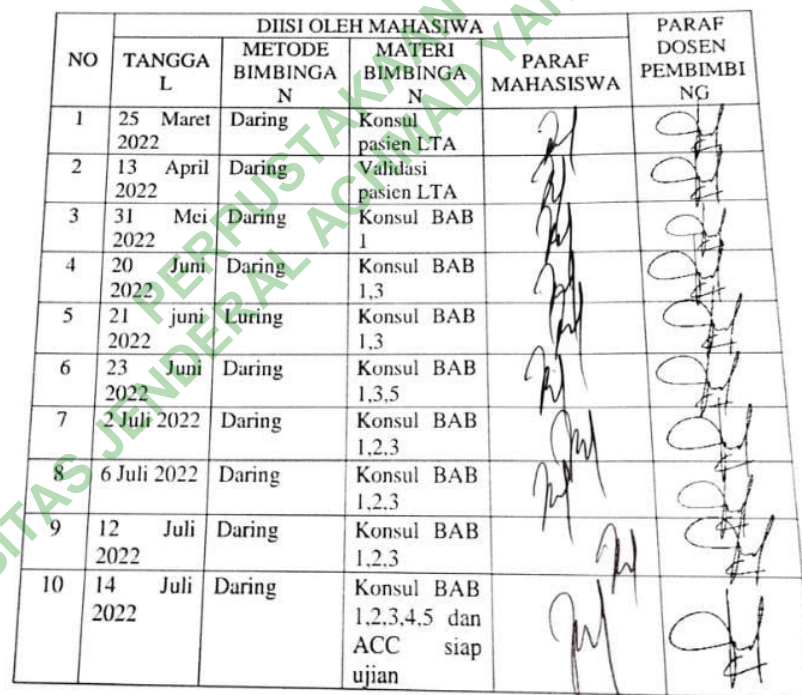 DIISI OLEH MAHASIWA
PARAF
DOSEN
PEMBIMBI
NG
NO
TANGGA
L
METODE
BIMBINGA
N
MATERI
BIMBINGA
N
PARAF
MAHASISWA
1 25 Maret Daring Konsul
2022 pasien LTA
2 13 April Daring Validasi
2022 pasien LTA
3 31 Mei Daring Konsul BAB
2022 1
4 20 Juni Daring Konsul BAB
2022 1,3
5 21 juni Luring Konsul BAB
2022 1,3
6 23 Juni Daring Konsul BAB
2022 1,3,5
7 2 Juli 2022 Daring Konsul BAB
1,2,3
8 6 Juli 2022 Daring Konsul BAB
1,2,3
9 12 Juli Daring Konsul BAB
2022 1,2,3
10 14 Juli Daring Konsul BAB
2022 1,2,3,4,5 dan
ACC siap
ujian
PERPUSTAKAAN
ITAS JENDERAL ACHMAD YAN